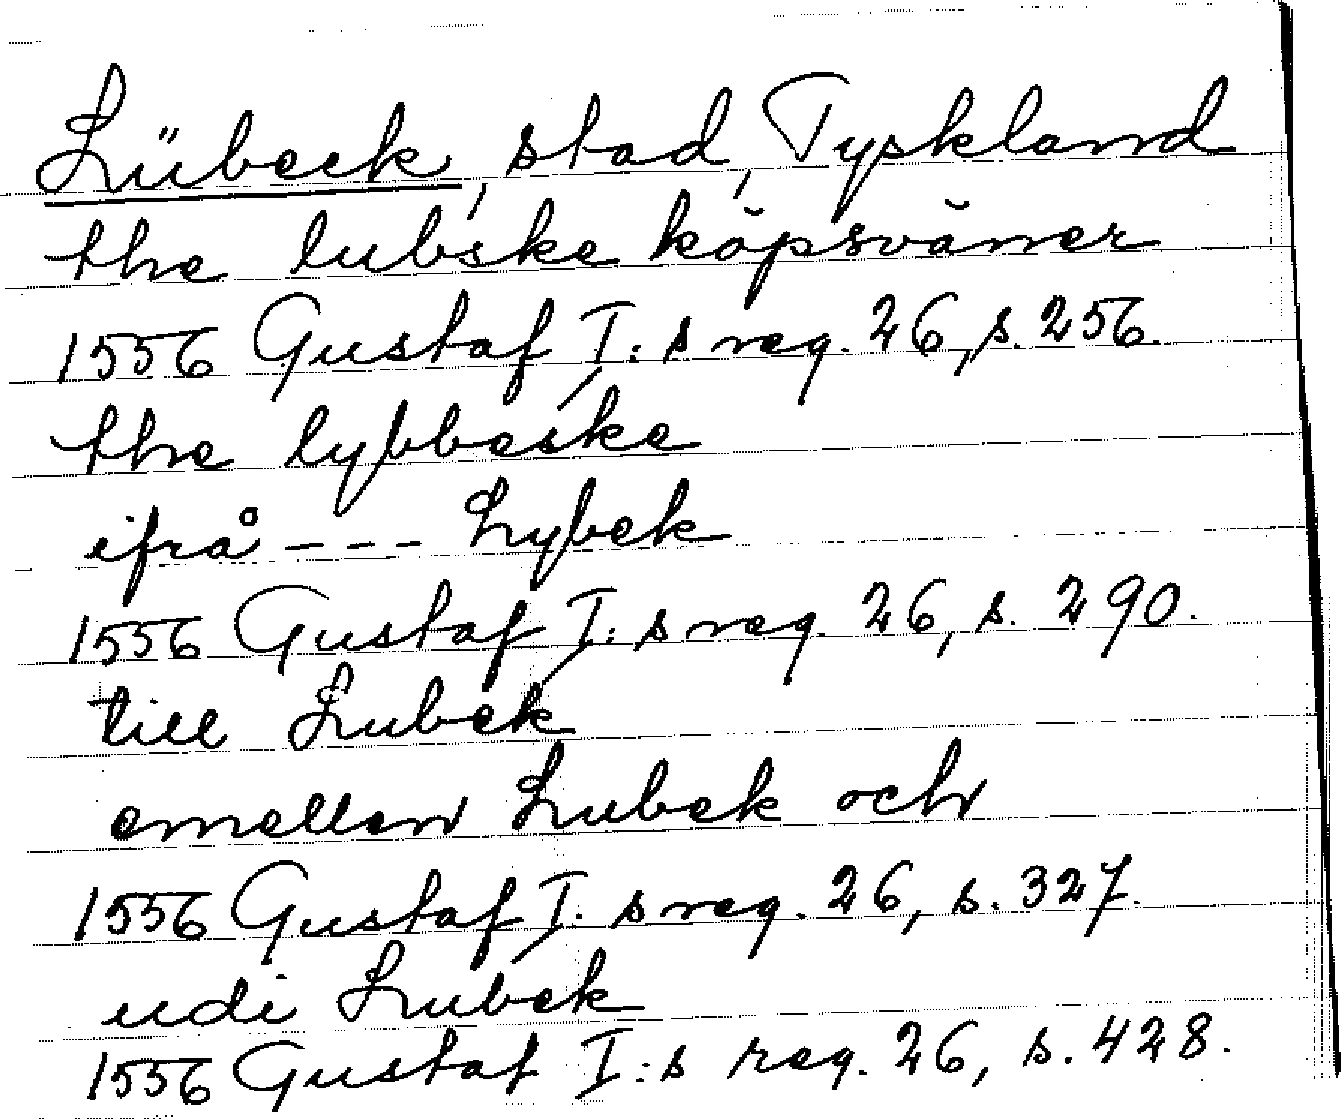 Lübeck, stad, Tyskland
the lubske köpsväner
1556 Gustaf I:s reg. 26, s. 256.
the lybbeske
ifrå --- Lybek
1556 Gustaf I:s reg. 26, s. 290.
till Lubek
emellen Lubek och
1556 Gustaf I:s reg. 26, s. 327.
udi Lubek
1556 Gustaf I:s reg. 26, s. 428.